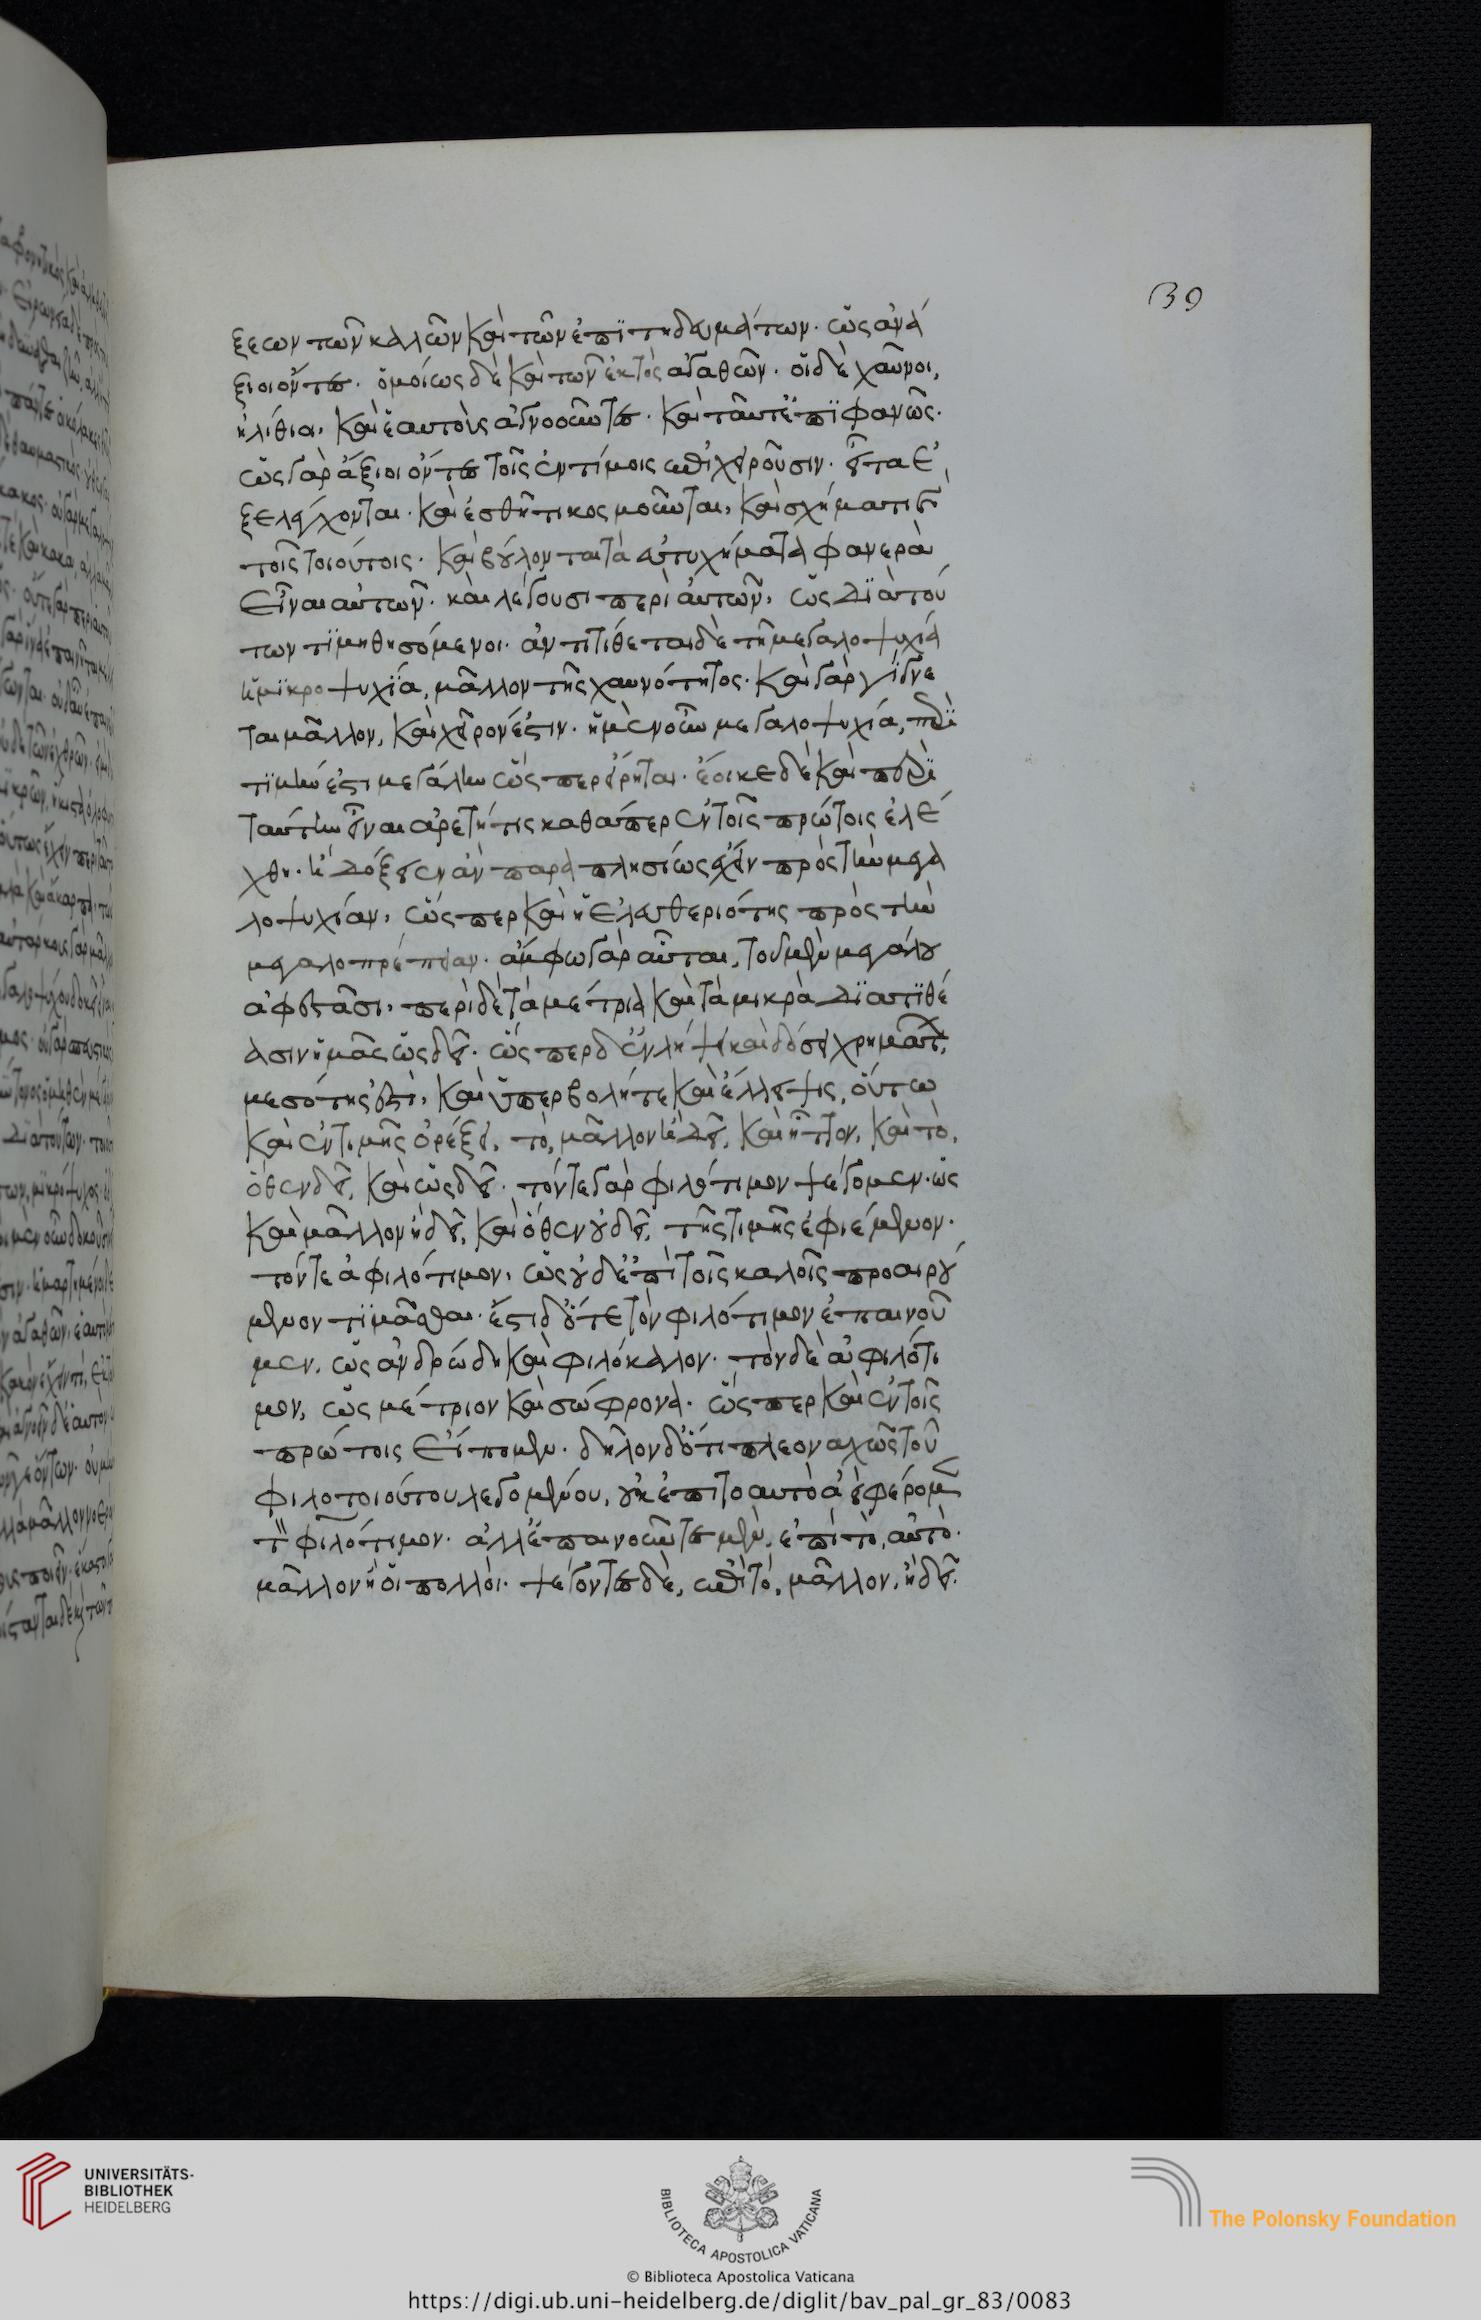 39
ξεων τῶν καλῶν καὶ τῶν ἐπϊτηδευμάτων. ὡς ἀνά
ξιοι ὄντες. ὁμοίως δὲ καὶ τῶν ἐκτὸς ἀγαθῶν. οἱ δὲ χαῦνοι,
ἠλίθιοι, καὶ ἑαυτοὺς ἀγνοοῦντες. καὶ ταῦτ' ἐπϊφανῶς.
ὡς γὰρ ἄξιοι ὄντες τοῖς ἐντίμοις ἐπιχειροῦσιν. εἶτα ἐ
ξελέγχονται. καὶ ἐσθῆτι κοσμοῦνται, καὶ σχήματι καὶ
τοῖς τοιούτοις. καὶ βούλονται τὰ εὐτυχήματα φανερὰ
εἶναι αὐτῶν. καὶ λέγουσι περὶ αὐτῶν, ὡς διὰ τού
των τϊμηθησόμενοι. ἀντιτίθεται δὲ τῆ μεγαλοψυχία
ἡ μϊκροψυχΐα, μᾶλλον τῆς χαυνότητος. καὶ γὰρ γΐγνε
ται μᾶλλον, καὶ χεῖρόν ἐστιν. ἡ μὲν οὖν μεγαλοψυχία, περὶ
τϊμήν ἐστι μεγάλην ὥσπερ εἴρηται. ἔοικε δὲ καὶ περὶ
ταύτην εἶναι ἀρετή τις καθάπερ ἐν τοῖς πρώτοις ἐλέ
χθη. ἣ δόξειεν ἂν παραπλησίως ἔχειν πρὸς τὴν μεγα
λοψυχίαν, ὥσπερ καὶ ἡ ἐλευθεριότης πρὸς τὴν
μεγαλοπρέπειαν. ἄμφω γὰρ αὗται, τοῦ μὲν μεγάλου
ἀφεστᾶσι, περὶ δὲ τὰ μέτρια καὶ τὰ μικρὰ δϊατϊθέ
ασιν ἡμᾶς ὡς δεῖ. ὥσπερ δ' ἐν λήψει καὶ δόσει χρημάτων,
μεσότης ἐστὶ, καὶ ὑπερβολή τε καὶ ἔλλειψις, οὕτω
καὶ ἐν τιμῆς ὀρέξει, τὸ, μᾶλλον ἢ δεῖ, καὶ ἧττον, καὶ τὸ,
ὅθεν δεῖ, καὶ ὡς δεῖ. τόν τε γὰρ φιλότιμον ψέγομεν. ὡς
καὶ μᾶλλον ἢ δεῖ, καὶ ὅθεν οὐ δεῖ, τῆς τιμῆς ἐφιέμενον.
τόν τε ἀφιλότιμον, ὡς οὐδ' ἐπὶ τοῖς καλοῖς προαιρού
μενον τϊμᾶσθαι. ἔστι δ' ὅτε τὸν φιλότιμον ἐπαινοῦ
μεν, ὡς ἀνδρώδη καὶ φιλόκαλον. τὸν δὲ ἀφιλότι
μον, ὡς μέτριον καὶ σώφρονα. ὥσπερ καὶ ἐν τοῖς
πρώτοις εἴπομεν. δῆλον δ' ὅτι πλεοναχῶς τοῦ
φιλοτοιούτου λεγομένου, οὐκ ἐπὶ τὸ αὐτὸ ἀεὶ φέρομεν
τὸ φιλότιμον. ἀλλ' ἐπαινοῦντες μὲν, ἐπὶ τὸ, αὐτὸ.
μᾶλλον ἢ οἱ πολλοί. ψέγοντες δὲ, ἐπὶ τὸ, μᾶλλον, ἢ δεῖ.
UNIVERSITÄTS-
BIBLIOTHEK
HEIDELBERG
BIBLIOTECA APOSTOLICA VATICANA
The Polonsky Foundation
© Biblioteca Apostolica Vaticana
https://digi.ub.uni-heidelberg.de/diglit/bav_pal_gr_83/0083